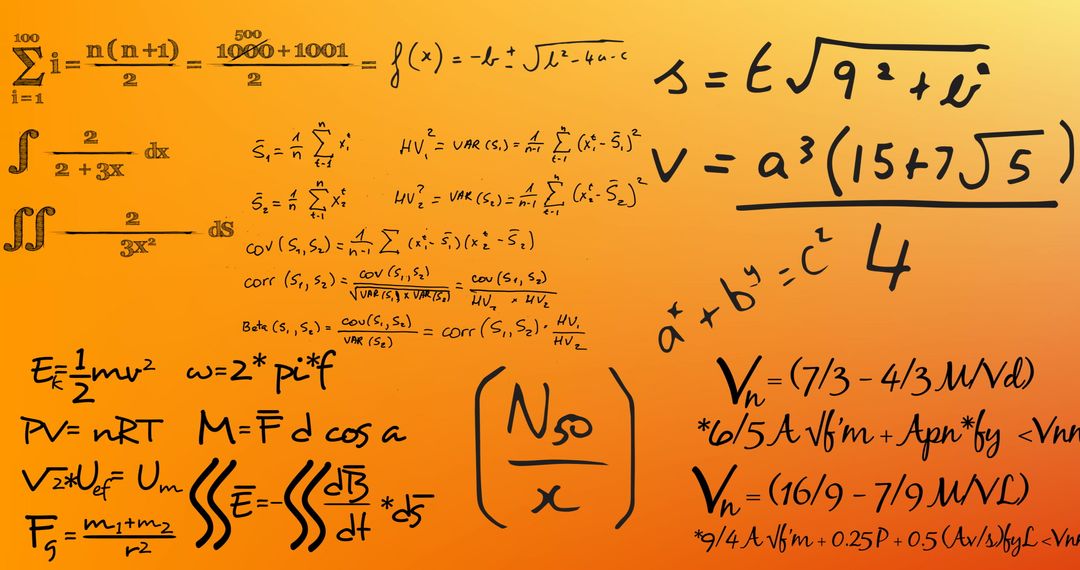 100
∑ i = n(n+1)/2 = 500 1000+1001/2 = f(x) = -b ± √b²-4a-c
i=1
s = t√9²+b^i
∫ 2/(2+3x) dx
S̄₁ = 1/n ∑ᵗ⁻¹ⁿ x₁ᵗ
HV₁² = VAR(S₁) = 1/(n-1) ∑ᵗ⁻¹ⁿ (x₁ᵗ-S̄₁)²
V = a³(15+7√5)/4
∬ 2/3x² dS
S̄₂ = 1/n ∑ᵗ⁻¹ⁿ x₂ᵗ
HV₂² = VAR(S₂) = 1/(n-1) ∑ᵗ⁻¹ⁿ (x₂ᵗ-S̄₂)²
cov(S₁,S₂) = 1/(n-1) ∑ (x₁ᵗ-S̄₁)(x₂ᵗ-S̄₂)
corr (S₁,S₂) = cov(S₁,S₂)/√VAR(S₁) x VAR(S₂) = cov(S₁,S₂)/HV₁ x HV₂
aˣ + bʸ = c²
Beta (S₁,S₂) = cov(S₁,S₂)/VAR(S₂) = corr(S₁,S₂) · HV₁/HV₂
Eₖ=1/2mv²
ω=2*pi*f
PV= nRT
M=F̄ d cos a
√2*Uef= Um
∬ Ē=-∬ dB̄/dt *ds̄
Fg = m₁+m₂/r²
(N₅₀/x)
Vn=(7/3 - 4/3 M/Vd)
*6/5 A √f'm + Apn*fy <Vnn
Vn=(16/9 - 7/9 M/VL)
*9/4 A √f'm + 0.25P + 0.5 (Av/s)fyL <Vnn